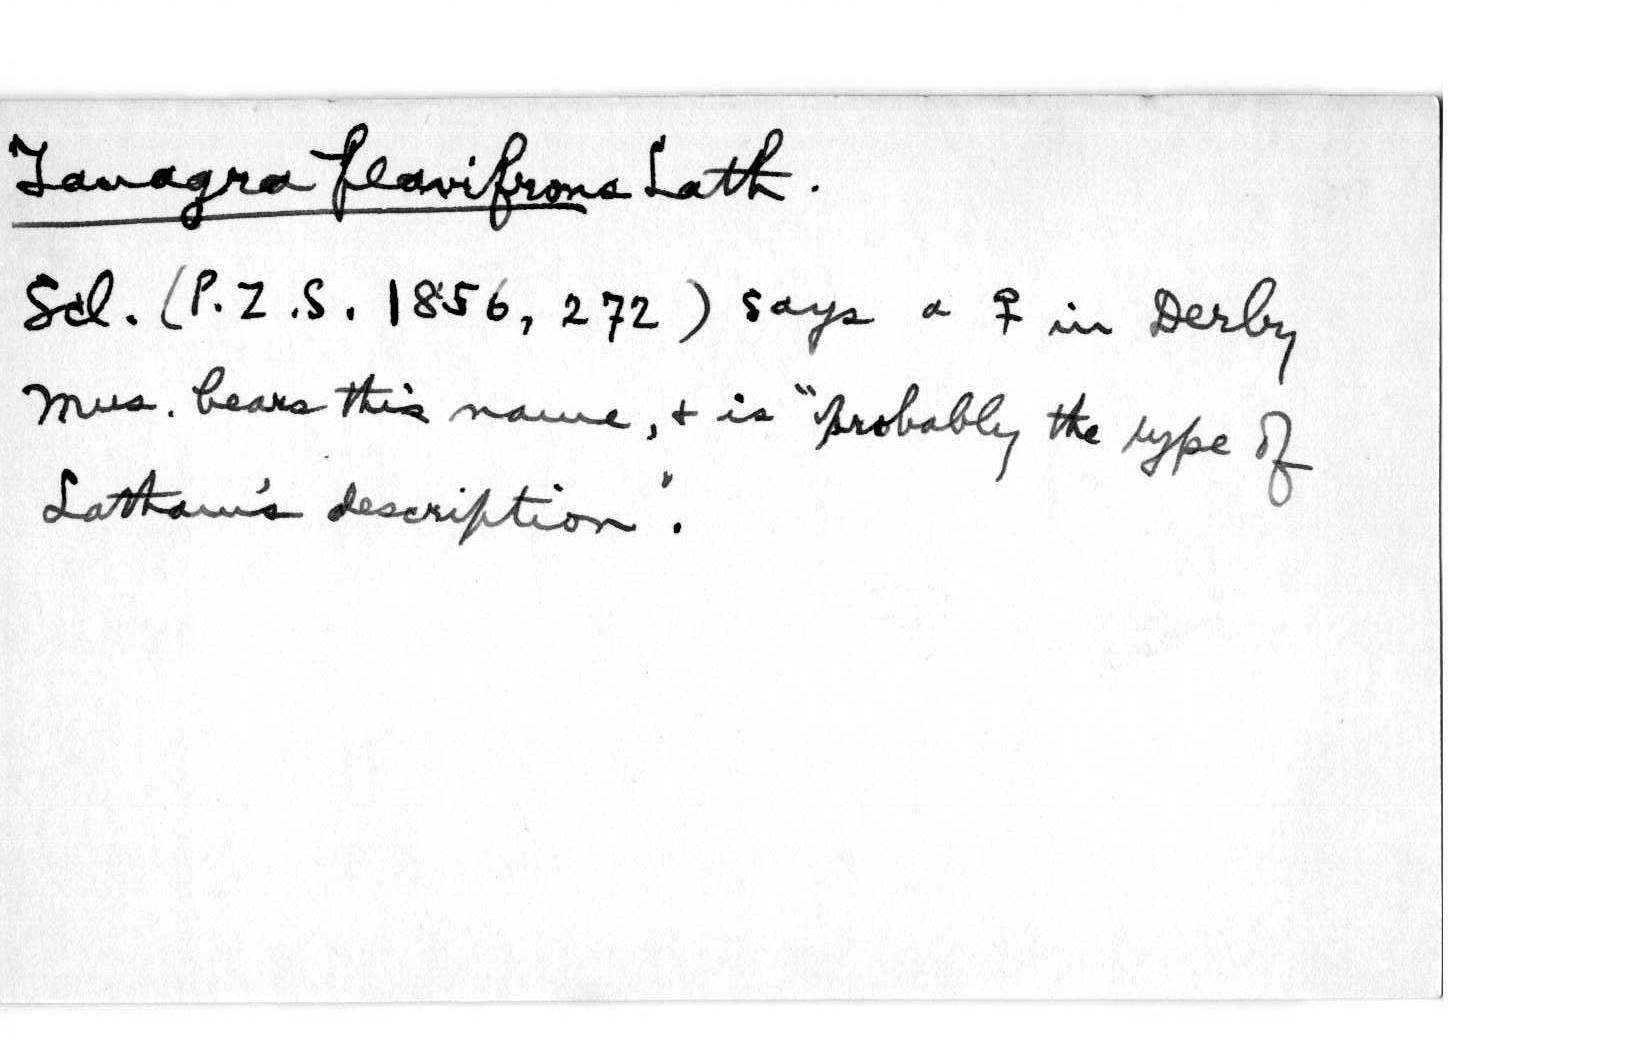 Tanagra flavifrons Lath.
Scl. (P.Z.S. 1856, 272) says a ♀ in Derby
Mus. bears this name, + is "probably the type of
Latham's description".